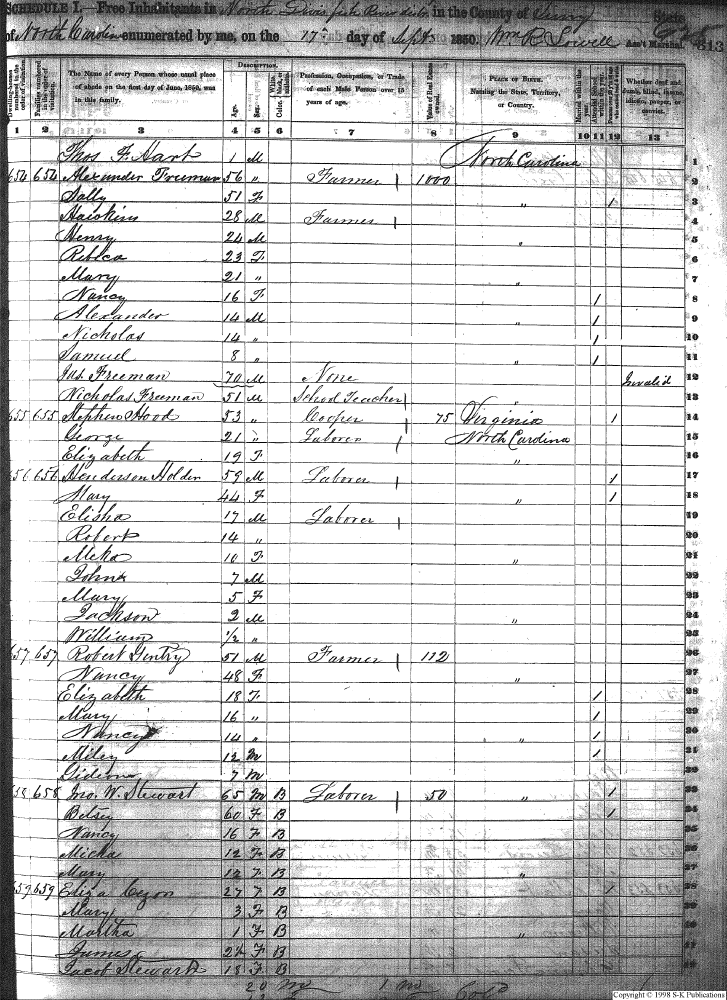 SCHEDULE I.—Free Inhabitants in North Division in the County of Surry State
of North Carolina enumerated by me, on the 17th day of Sept 1850. Wm R. Lovell Ass't Marshal. 813
Dwelling-houses numbered in the order of visitation.
Families numbered in the order of visitation.
The Name of every Person whose usual place of abode on the first day of June, 1850, was in this family.
DESCRIPTION.
Age.
Sex.
Color.
Profession, Occupation, or Trade of each Male Person over 15 years of age.
Value of Real Estate owned.
PLACE OF BIRTH. Naming the State, Territory, or Country.
Married within the year.
Whether deaf and dumb, blind, insane, idiotic, pauper, or convict.
1 2 3 4 5 6 7 8 9 10 11 12 13
Thos F. Hart 1 M North Carolina 1
650 650 Alexander Freeman 56 " Farmer 1000 2
Sally 51 F " / 3
28 M Farmer 4
Henry 24 M " 5
Rebica 23 F 6
Mary 21 " " 7
Nancy 16 F / 8
Alexander 14 M " / 9
Nicholas 14 " / 10
Samuel 8 " " / 11
Jas. Freeman 70 M None Invalid 12
Nicholas Freeman 51 M School Teacher 13
655 655 Stephen Hood 53 " Cooper 75 Virginia / 14
George 21 " Laborer North Carolina 15
Elizabeth 19 F " 16
656 656 Henderson Holder 59 M Laborer / 17
Mary 44 F " / 18
Elisha 17 M Laborer 19
Robert 14 " 20
10 F " 21
John 7 M 22
Mary 5 F 23
Jackson 2 M " 24
William 1/2 " 25
657 657 Robert Gentry 51 M Farmer 112 26
Nancy 48 F " 27
Elizabeth 18 F / 28
Mary 16 " / 29
Nancy 14 " " / 30
Miley 12 M / 31
Gideon 7 M 32
658 658 Jno. W. Stewart 65 M B Laborer 50 " / 33
Betsey 60 F B / 34
Nancy 16 F B 35
Micha 12 F B 36
Mary 12 F B " 37
659 659 Eliza 27 F B / 38
Mary 3 F B
Martha 1 F B "
James F B
Jacob Stewart 18 F B
20
Copyright © 1998 S-K Publications